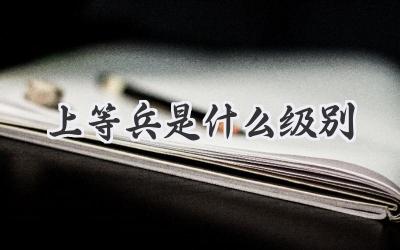 上等兵是什么级别